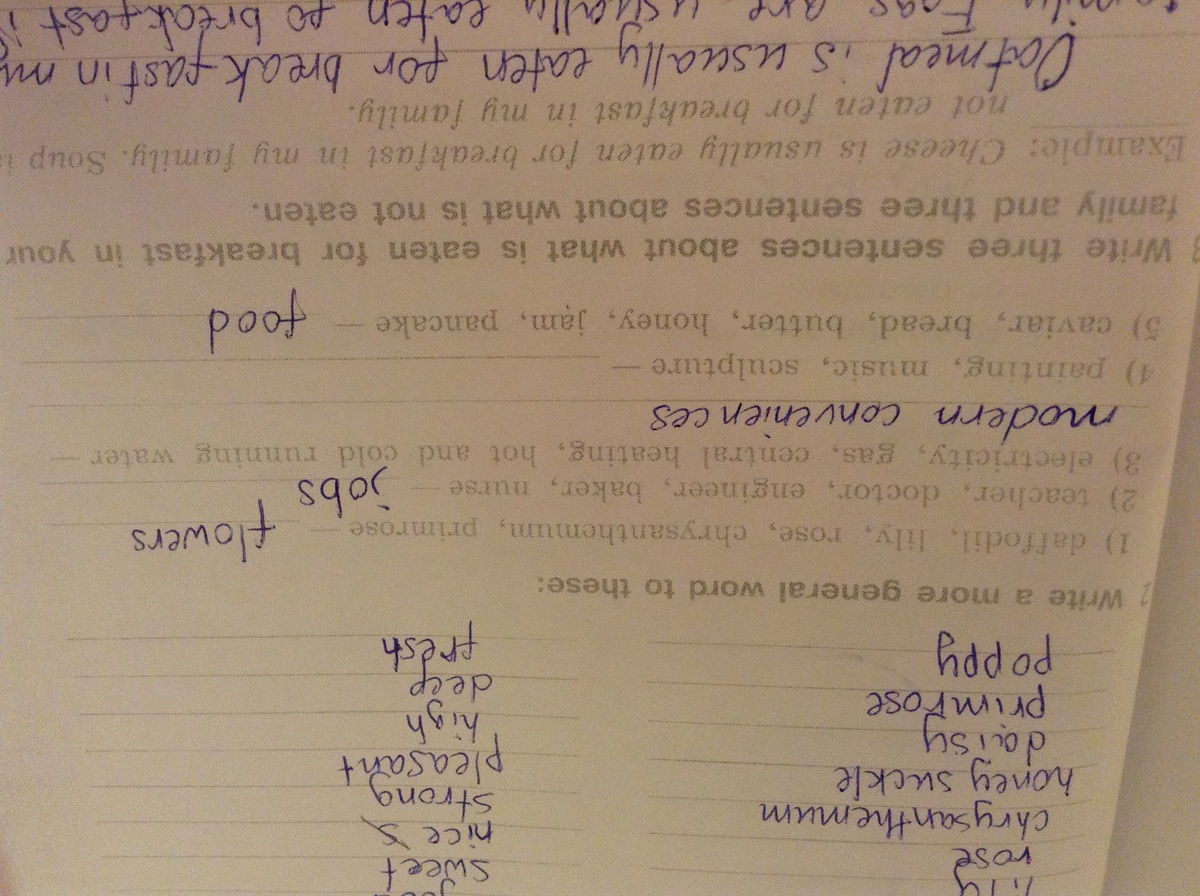 lily
rose
chrysanthemum
honey suckle
daisy
primrose
poppy
sweet
nice
strong
pleasant
high
deep
fresh
2 Write a more general word to these:
1) daffodil, lily, rose, chrysanthemum, primrose — flowers
2) teacher, doctor, engineer, baker, nurse — jobs
3) electricity, gas, central heating, hot and cold running water —
modern conveniences
4) painting, music, sculpture —
5) caviar, bread, butter, honey, jam, pancake — food
3 Write three sentences about what is eaten for breakfast in your
family and three sentences about what is not eaten.
Example: Cheese is usually eaten for breakfast in my family. Soup is
not eaten for breakfast in my family.
Oatmeal is usually eaten for breakfast in my
family. Eggs are usually eaten fo breakfast i